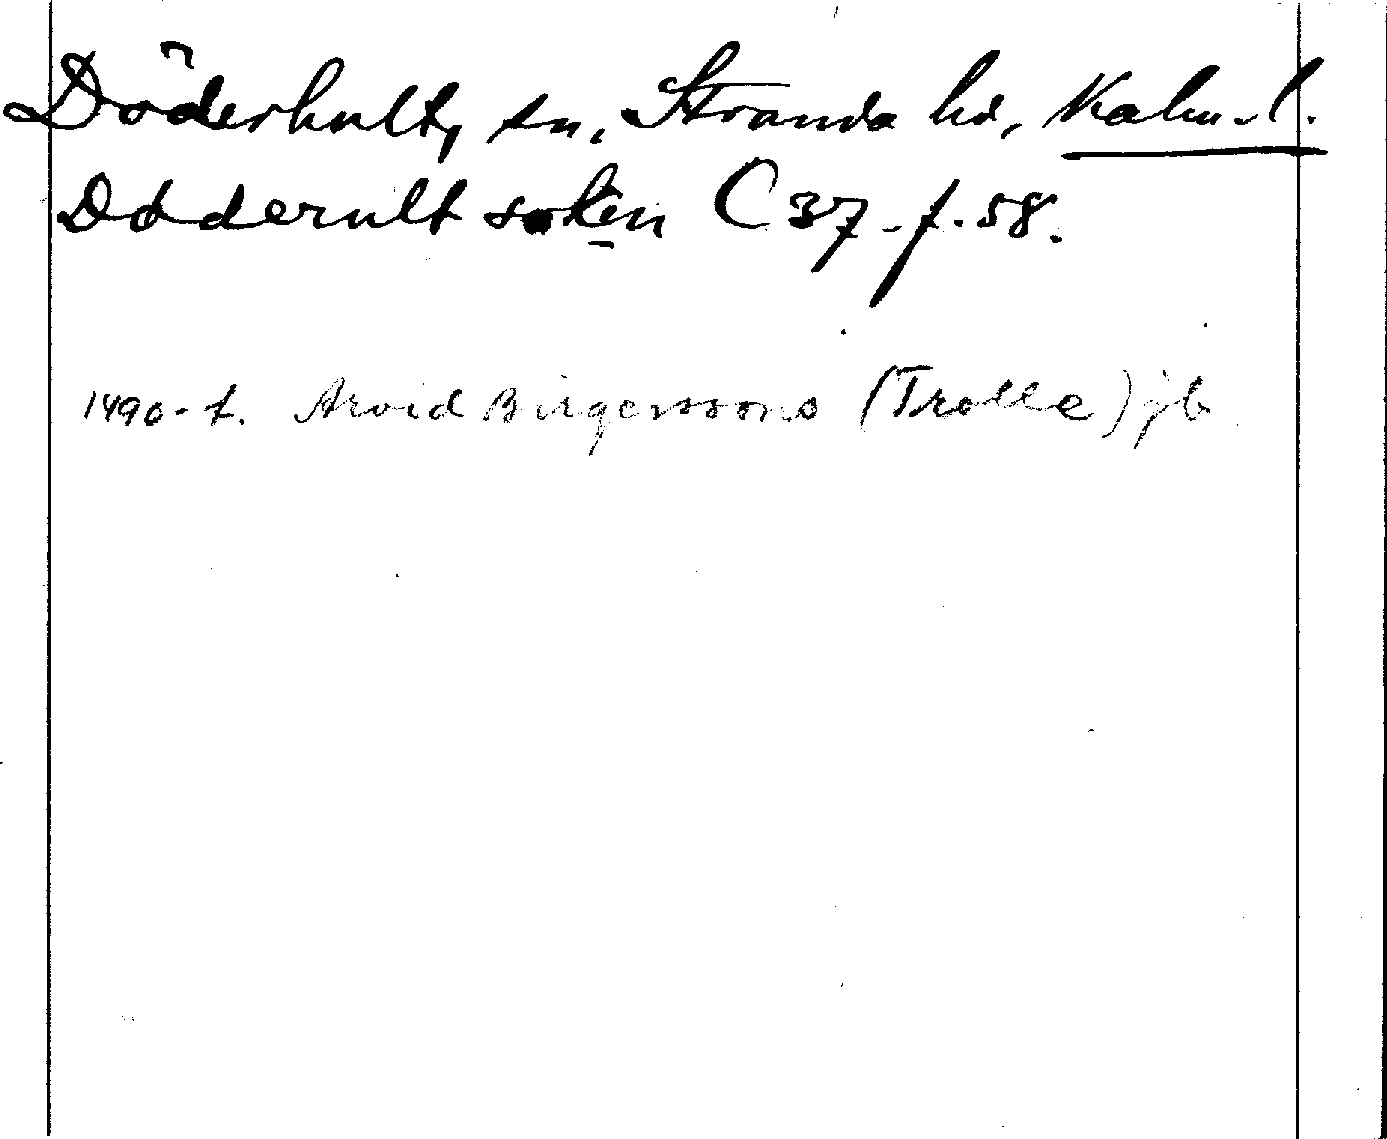 Döderhult, sn, Stranda hd, Kalm. l.
Døderult soken C 37 f. 58.
1490-t. Arvid Birgerssons (Trolle) jb